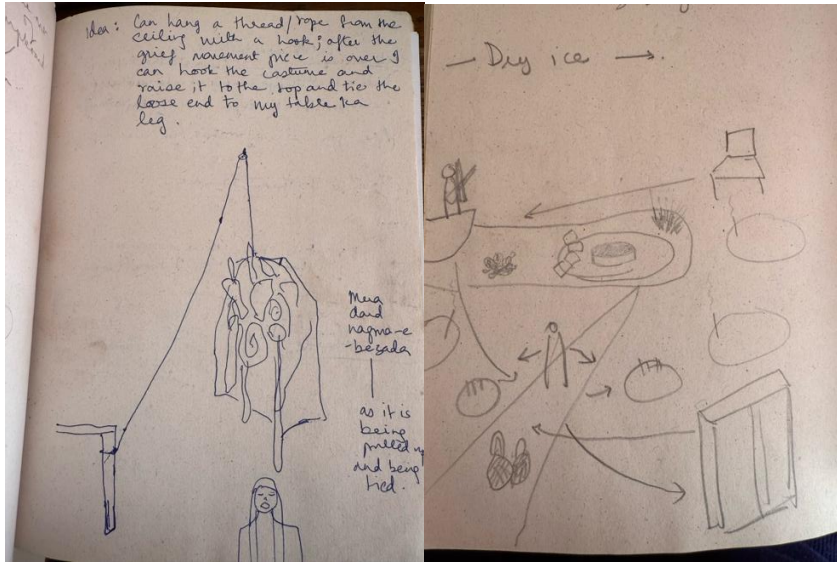 idea: Can hang a thread/rope from the
ceiling with a hook; after the
grief movement piece is over I
can hook the costume and
raise it to the top and tie the
loose end to my table ka
leg.
Mera
dard
nagma-e
-besada
as it is
being
pulled up
and being
tied.
- Dry ice →.